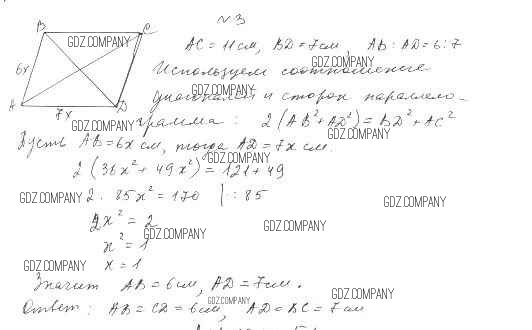 №3
B C
AC = 11 см, BD = 7 см, AB : AD = 6 : 7
6x
Используем соотношение
диагоналей и сторон параллело-
A D
7x
грамма: 2(AB² + AD²) = BD² + AC²
Пусть AB = 6x см, тогда AD = 7x см.
2(36x² + 49x²) = 121 + 49
2 · 85x² = 170 | : 85
2x² = 2
x² = 1
x = 1
Значит AB = 6 см, AD = 7 см.
Ответ: AB = CD = 6 см, AD = BC = 7 см
GDZ.COMPANY
GDZ.COMPANY
GDZ.COMPANY
GDZ.COMPANY
GDZ.COMPANY
GDZ.COMPANY
GDZ.COMPANY
GDZ.COMPANY
GDZ.COMPANY
GDZ.COMPANY
GDZ.COMPANY
GDZ.COMPANY
GDZ.COMPANY